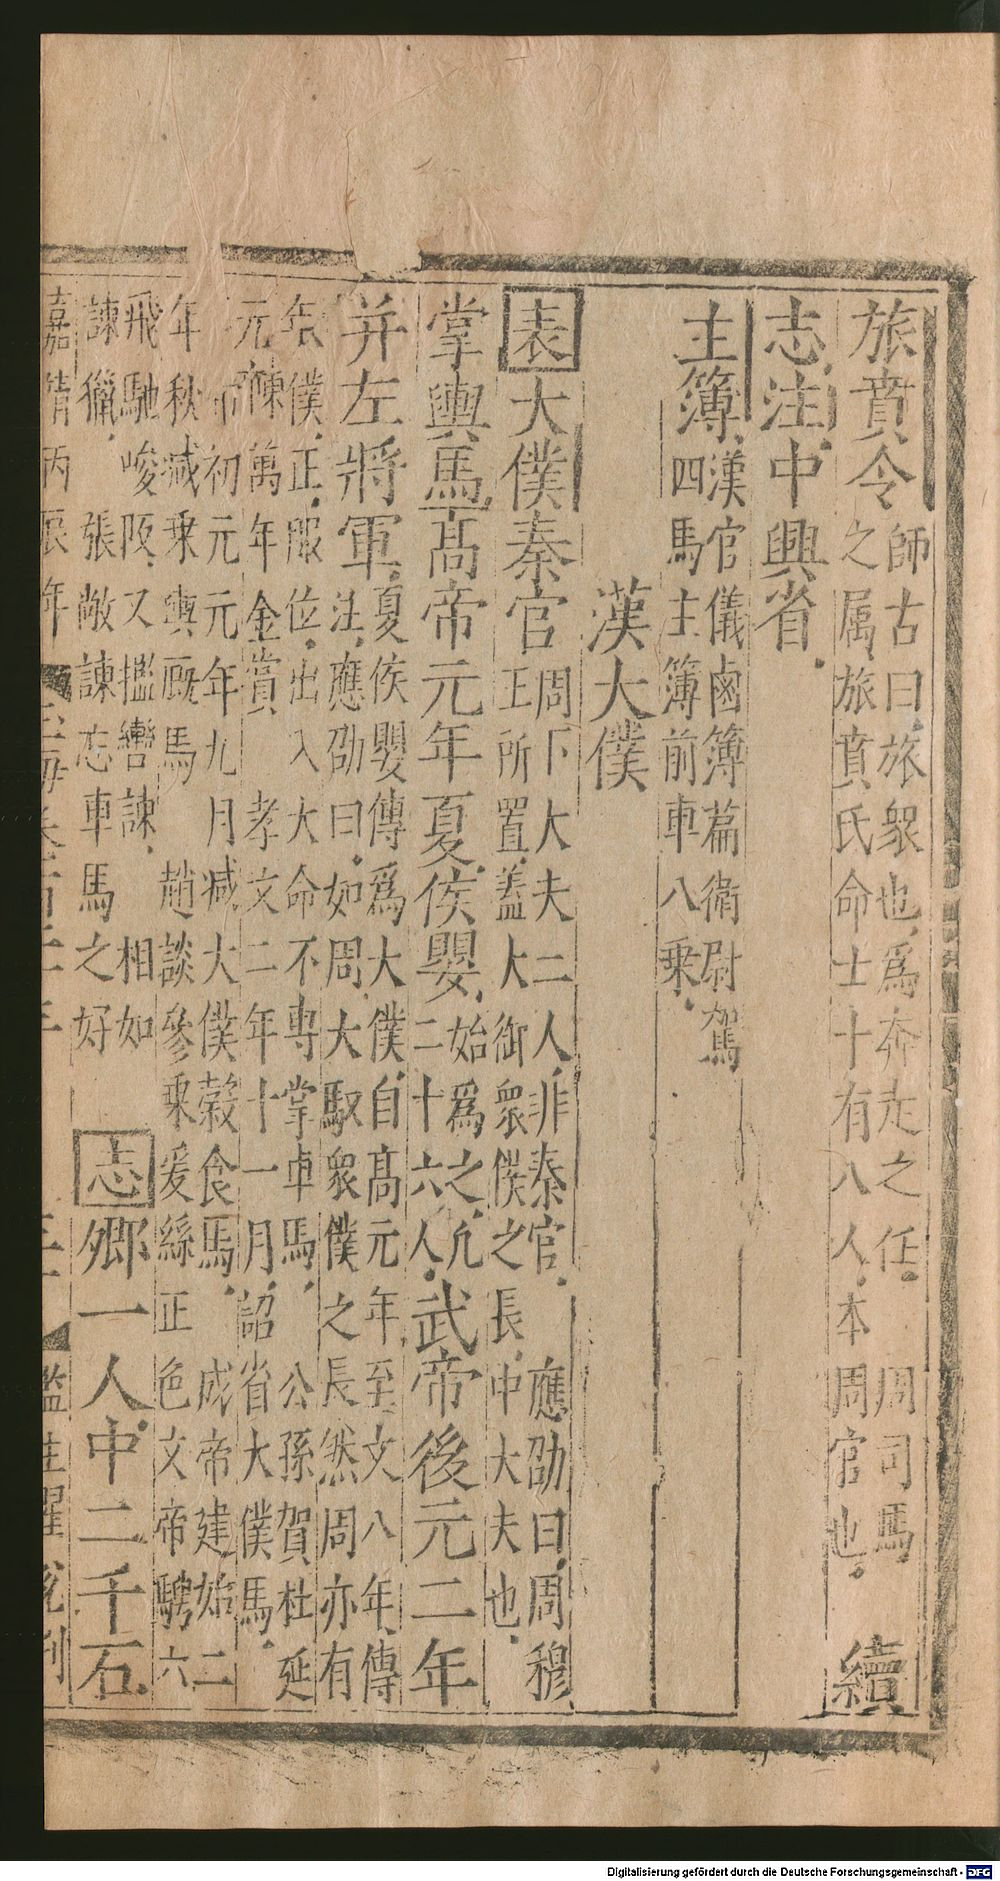 旅賁令師古曰旅衆也為奔走之任周司馬
之属旅賁氏命士十有八人本周官也續
志注中興省
主簿漢官儀鹵簿篇衛尉駕
四馬主簿前車八乗
漢大僕
表大僕秦官周下大夫二人非秦官應劭曰周穆
王所置蓋大御衆僕之長中大夫也
掌輿馬高帝元年夏侯嬰始為之凢
二十六人武帝後元二年
并左將軍夏侯嬰傳爲大僕自高元年至文八年傳
注應劭曰如周大馭衆僕之長然周亦有
僕正服位出入大命不専掌車馬公孫賀杜延
年陳萬年金賞孝文二年十一月詔省大僕馬
元帝初元元年九月减大僕榖食馬成帝建始二
年秋减乗輿厩馬趙談參乗爰絲正色文帝騁六
飛馳峻阪又攬轡諫相如
諫獵張敞諫忘車馬之好志卿一人中二千石
嘉靖丙辰年
監生 刊
Digitalisierung gefördert durch die Deutsche Forschungsgemeinschaft - DFG